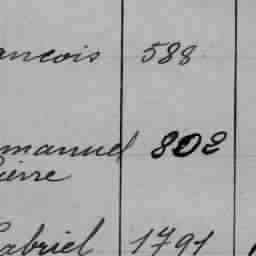 ancois 588
manuel 802
ierre
abriel 1791